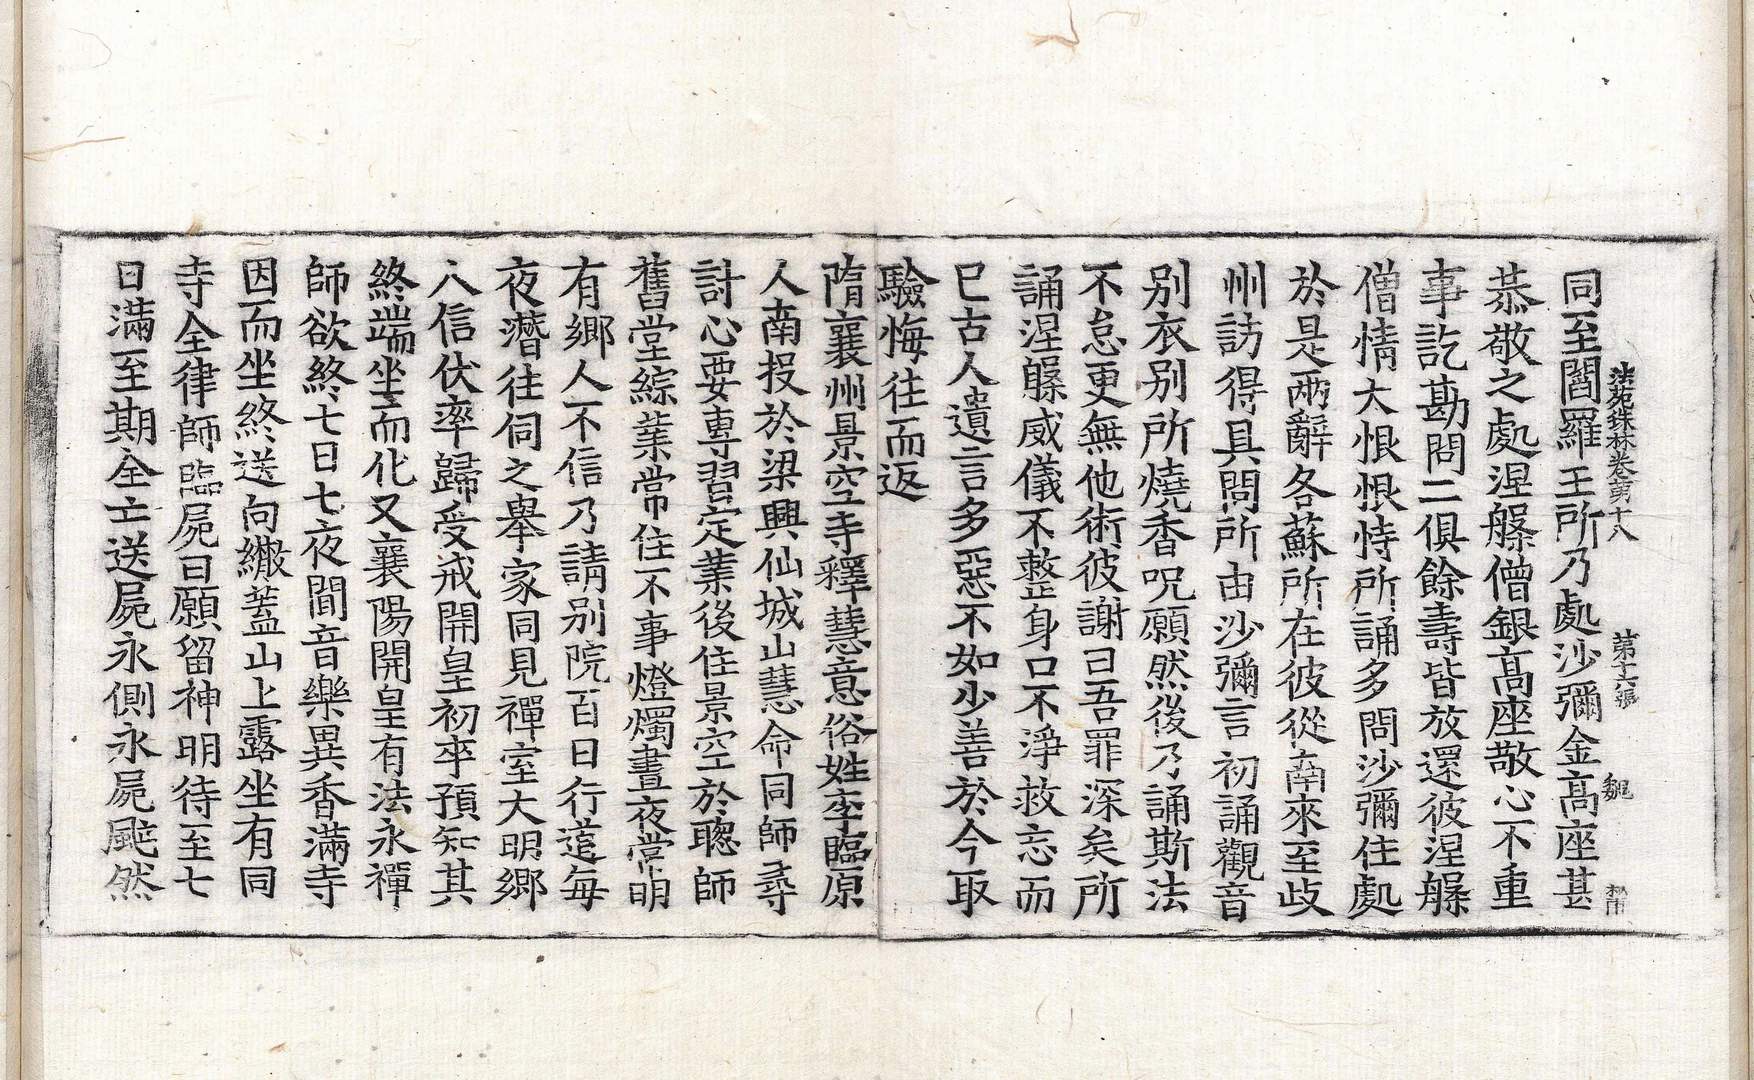 法苑珠林卷第十八 第十六張 魏
同至閻羅王所乃處沙彌金髙座甚
恭敬之處涅槃僧銀髙座敬心不重
事訖勘問二俱餘壽皆放還彼涅槃
僧情大恨恨恃所誦多問沙彌住處
於是兩辭各蘇所在彼從南來至歧
州訪得具問所由沙彌言初誦觀音
别衣别所燒香呪願然後乃誦斯法
不怠更無他術彼謝曰吾罪深矣所
誦涅槃威儀不整身口不淨救忘而
巳古人遺言多惡不如少善於今取
驗悔往而返
隋襄州景空寺釋慧意俗姓李臨原
人南投於梁興仙城山慧命同師尋
討心要專習定業後住景空於聰師
舊堂綜業常住不事燈燭晝夜常明
有鄉人不信乃請别院百日行道每
夜潛往伺之舉家同見禪室大明鄉
人信伏率歸受戒開皇初卒預知其
終端坐而化又襄陽開皇有法永禪
師欲終七日七夜間音樂異香滿寺
因而坐終送向繖蓋山上露坐有同
寺全律師臨屍曰願留神明待至七
日滿至期全亡送屍永側永屍颯然